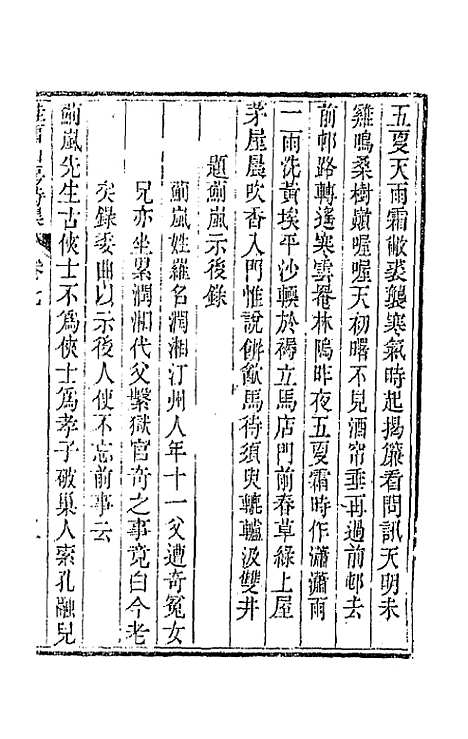 五夏天雨霜敝裘襲寒氣時起揭簾看問訊天明未
雞鳴桑樹巔喔喔天初曙不見酒帘垂再過前邨去
前邨路轉遙寒雲罨林隖昨夜五夏霜時作瀟瀟雨
一雨洗黃埃平沙輭於褥立馬店門前春草綠上屋
茅屋晨吹香入門惟說餅飲馬待須臾轆轤汲雙井
題薊嵐示後錄
薊嵐姓羅名潤湘汀州人年十一父遭奇冤女
兄亦坐累潤湘代父繫獄官奇之事竟白今老
矣錄委曲以示後人使不忘前事云
薊嵐先生古俠士不爲俠士爲孝子破巢人索孔融兒